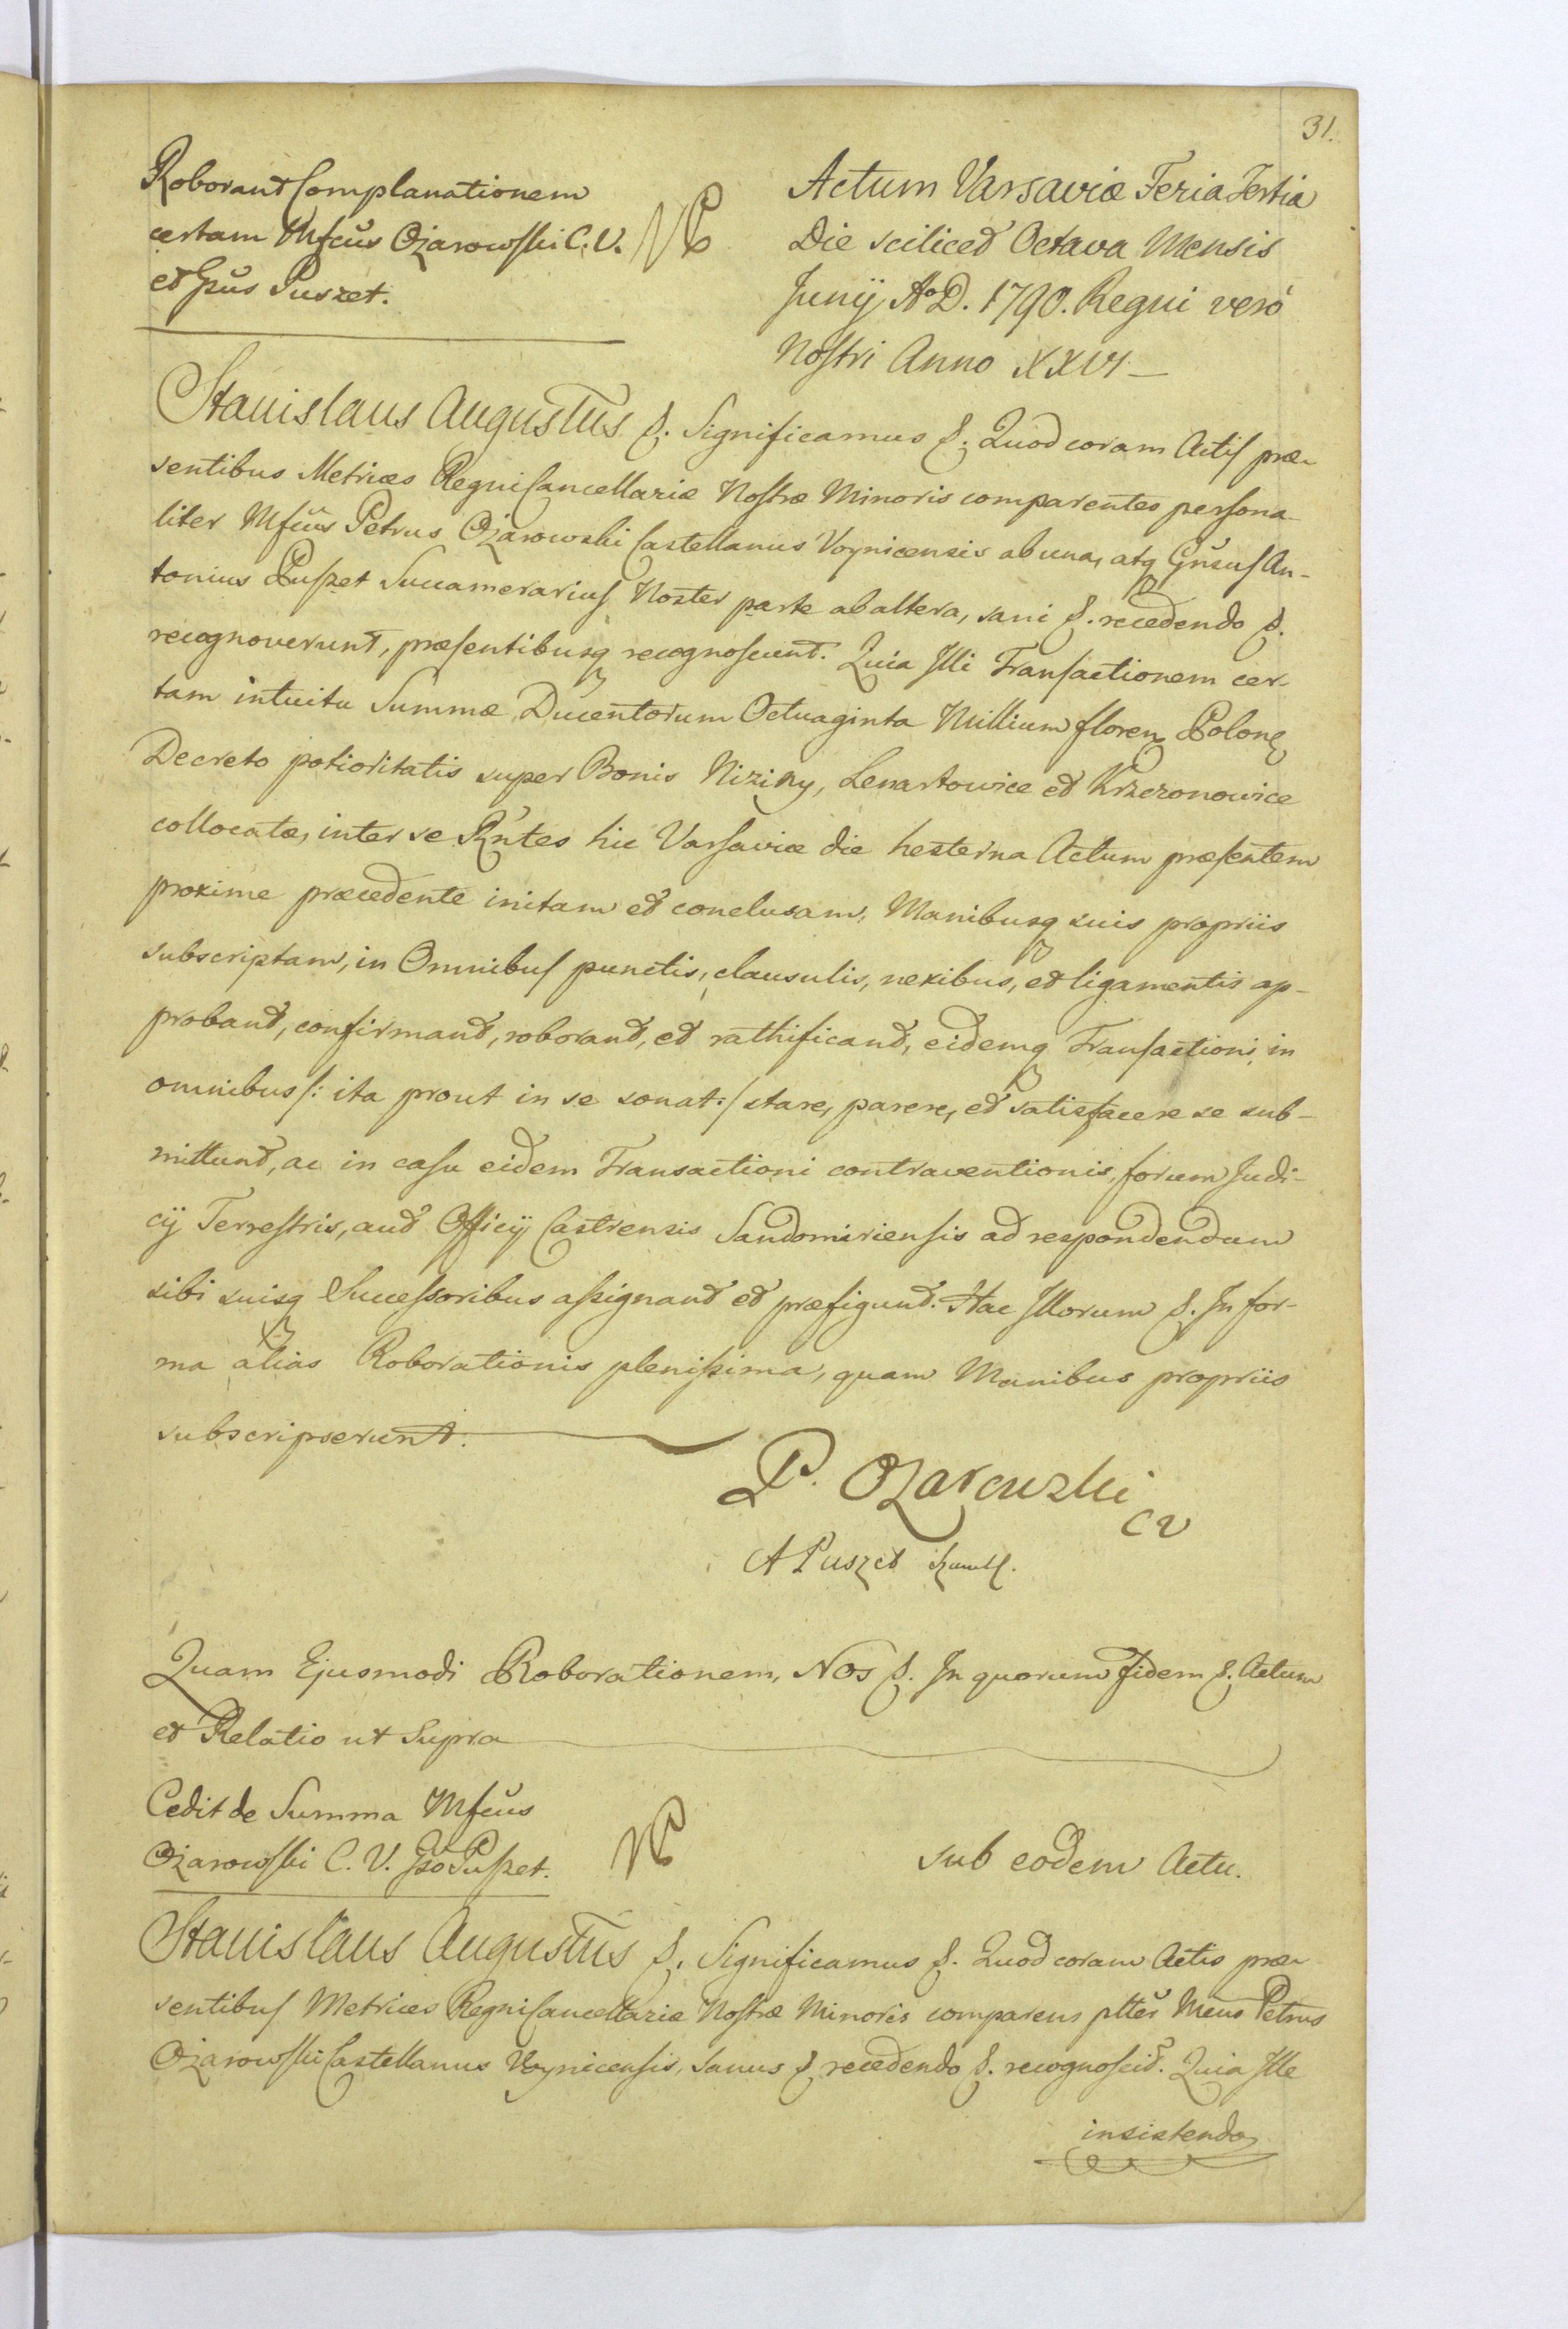 31.
Roborant Complanationem
certam Mfcus Ożarowski C. V.
et Gsus Puszet.
Actum Varsaviæ Feria Tertia
Die scilicet Octava Mensis
Junij Aº D. 1790. Regni verò
Nostri Anno XXVI
Stanislaus Augustus &. Significamus &. Quod coram Actis præ-
sentibus Metrices Regni Cancellariæ Nostræ Minoris comparentes persona-
liter Mfcus Petrus Ożarowski Castellanus Voynicensis ab una, atq Gnsus An-
tonius Puszet Succamerarius Noster parte ab altera, sani &. recedendo &.
recognoverunt, præsentibusq recognoscunt. Quia Illi Transactionem cer-
tam intuitu Summæ Ducentorum Octuaginta Millium floren Polon
Decreto potioritatis super Bonis Niziny, Lenartowice et Krzczonowice
collocatæ, inter se Rntes hic Varsaviæ die hesterna Actum præsentem
proxime præcedente initam et conclusam, Manibusq suis propriis
subscriptam, in Omnibus punctis, clausulis, nexibus, et ligamentis ap-
probant, confirmant, roborant, et rathificant, eidemq Transactioni in
omnibus /: ita prout in se sonat :/ stare, parere, et satisfacere se sub-
mittunt, ac in casu eidem Transactioni contraventionis, forum Judi-
cij Terrestris, aut Officij Castrensis Sandomiriensis ad respondendum
sibi suisq Successoribus assignant et præfigunt. Hac Illorum &. In for-
ma alias Roborationis plenissima, quam Manibus propriis
subscripserunt.
P. Ożarowski
CV
A Puszet
Quam Ejusmodi Roborationem, Nos &. In quorum fidem &. Actum
et Relatio ut Supra
Cedit de Summa Mfcus
Ożarowski C. V. Gso Puszet.
sub eodem Actu.
Stanislaus Augustus &. Significamus &. Quod coram Actis præ-
sentibus Metrices Regni Cancellariæ Nostræ Minoris comparens plter Mcus Petrus
Ożarowski Castellanus Voynicensis, sanus & recedendo &. recognoscit. Quia Ille
insistendo